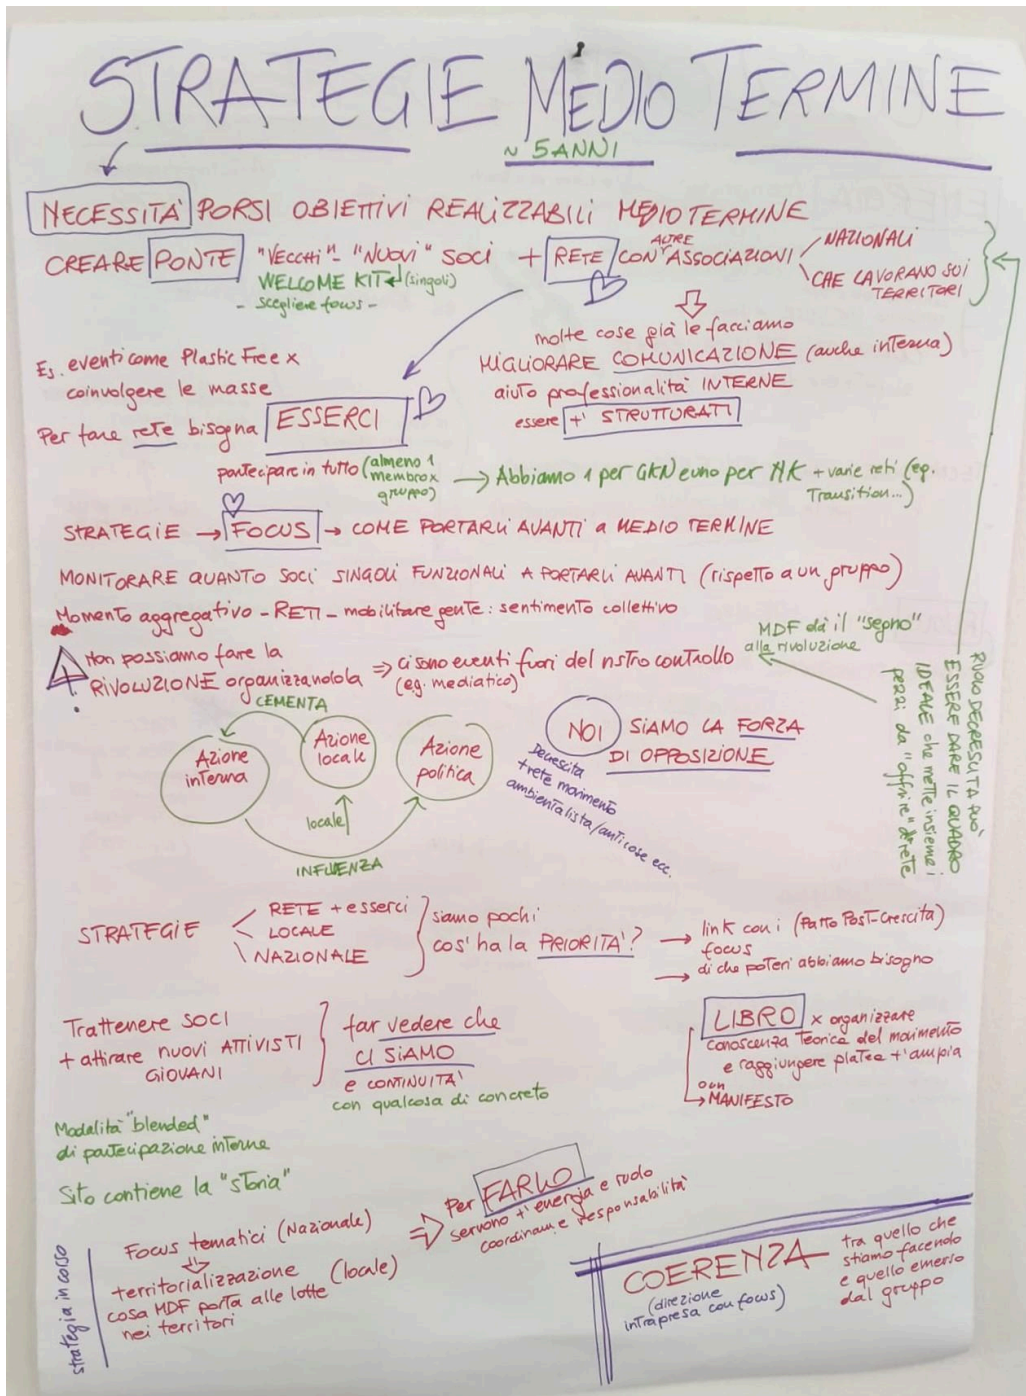 STRATEGIE MEDIO TERMINE
~ 5 ANNI
NECESSITA' PORSI OBIETTIVI REALIZZABILI MEDIO TERMINE
CREARE PONTE "VECCHI" - "NUOVI" SOCI + RETE CON ALTRE ASSOCIAZIONI
NAZIONALI
CHE LAVORANO SUI
TERRITORI
WELCOME KIT (singoli)
- scegliere focus -
molte cose già le facciamo
MIGLIORARE COMUNICAZIONE (anche interna)
aiuto professionalità INTERNE
essere +' STRUTTURATI
Es. eventi come Plastic Free x
coinvolgere le masse
Per fare rete bisogna ESSERCI
partecipare in tutto (almeno 1
membro x
gruppo)
→ Abbiamo 1 per GKN e uno per MK + varie reti (eg.
Transition...)
STRATEGIE → FOCUS → COME PORTARLI AVANTI a MEDIO TERMINE
MONITORARE QUANTO SOCI SINGOLI FUNZIONALI A PORTARLI AVANTI (rispetto a un gruppo)
Momento aggregativo - RETI - mobilitare gente: sentimento collettivo
! Non possiamo fare la
RIVOLUZIONE organizzandola
⇒ ci sono eventi fuori del nstro controllo
(eg. mediatico)
MDF dà il "segno"
alla rivoluzione
RUOLO DECRESCITA PUÒ
ESSERE DARE IL QUADRO
IDEALE che mette insieme i
pezzi da "offrire" a rete
CEMENTA
Azione
interna
Azione
locale
Azione
politica
locale
INFLUENZA
NOI SIAMO LA FORZA
DI OPPOSIZIONE
Decrescita
+ rete movimento
ambientalista/anticose ecc.
STRATEGIE
RETE + esserci
LOCALE
NAZIONALE
siamo pochi
cos' ha la PRIORITA'?
→ link con i (Patto Post-Crescita)
focus
→ di che poteri abbiamo bisogno
Trattenere SOCI
+ attirare nuovi ATTIVISTI
GIOVANI
far vedere che
CI SIAMO
e CONTINUITA'
con qualcosa di concreto
LIBRO x organizzare
conoscenza Teorica del movimento
e raggiungere platea +' ampia
o un
→ MANIFESTO
Modalità "blended"
di partecipazione interne
Sito contiene la "storia"
strategia in corso
Focus tematici (Nazionale)
territorializzazione (locale)
cosa MDF porta alle lotte
nei territori
⇒ Per FARLO
servono +' energia e ruolo
coordinam. e responsabilità
COERENZA
(direzione
intrapresa con focus)
tra quello che
stiamo facendo
e quello emerso
dal gruppo